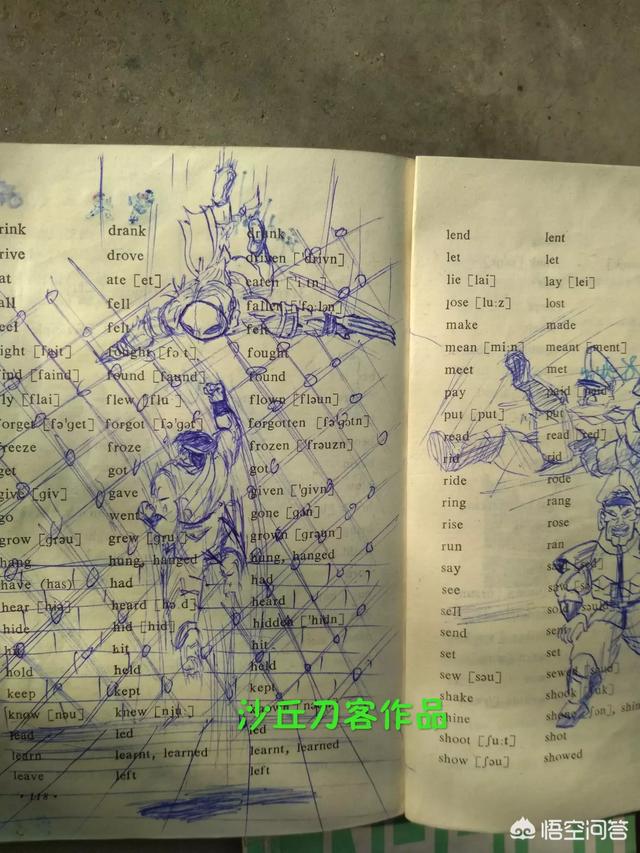 rink drank drunk
rive drove driven ['drivn]
at ate [et] eaten ['i:tn]
all fell fallen ['fɔ:lən]
eel felt felt
ight [fait] fought [fɔ:t] fought
ind [faind] found [faund] found
ly [flai] flew [flu:] flown [fləun]
orget [fə'get] forgot [fə'gɔt] forgotten [fə'gɔtn]
freeze froze frozen ['frəuzn]
get got got
give [giv] gave given ['givn]
go went gone [gɔn]
grow [grəu] grew [gru:] grown [grəun]
hang hung, hanged hung, hanged
have (has) had had
hear [hiə] heard [hə:d] heard
hide hid [hid] hidden ['hidn]
hit hit hit
hold held held
keep kept kept
know [nəu] knew [nju:]
lead led led
learn learnt, learned learnt, learned
leave left left
·118·
lend lent
let let
lie [lai] lay [lei]
lose [lu:z] lost
make made
mean [mi:n] meant [ment]
meet met
pay paid [peid]
put [put] put
read read [red]
rid rid
ride rode
ring rang
rise rose
run ran
say
see saw
sell sold
send sent
set set
sew [səu] sewed
shake shook
shine
shoot [ʃu:t] shot
show [ʃəu] showed
沙丘刀客作品
悟空问答